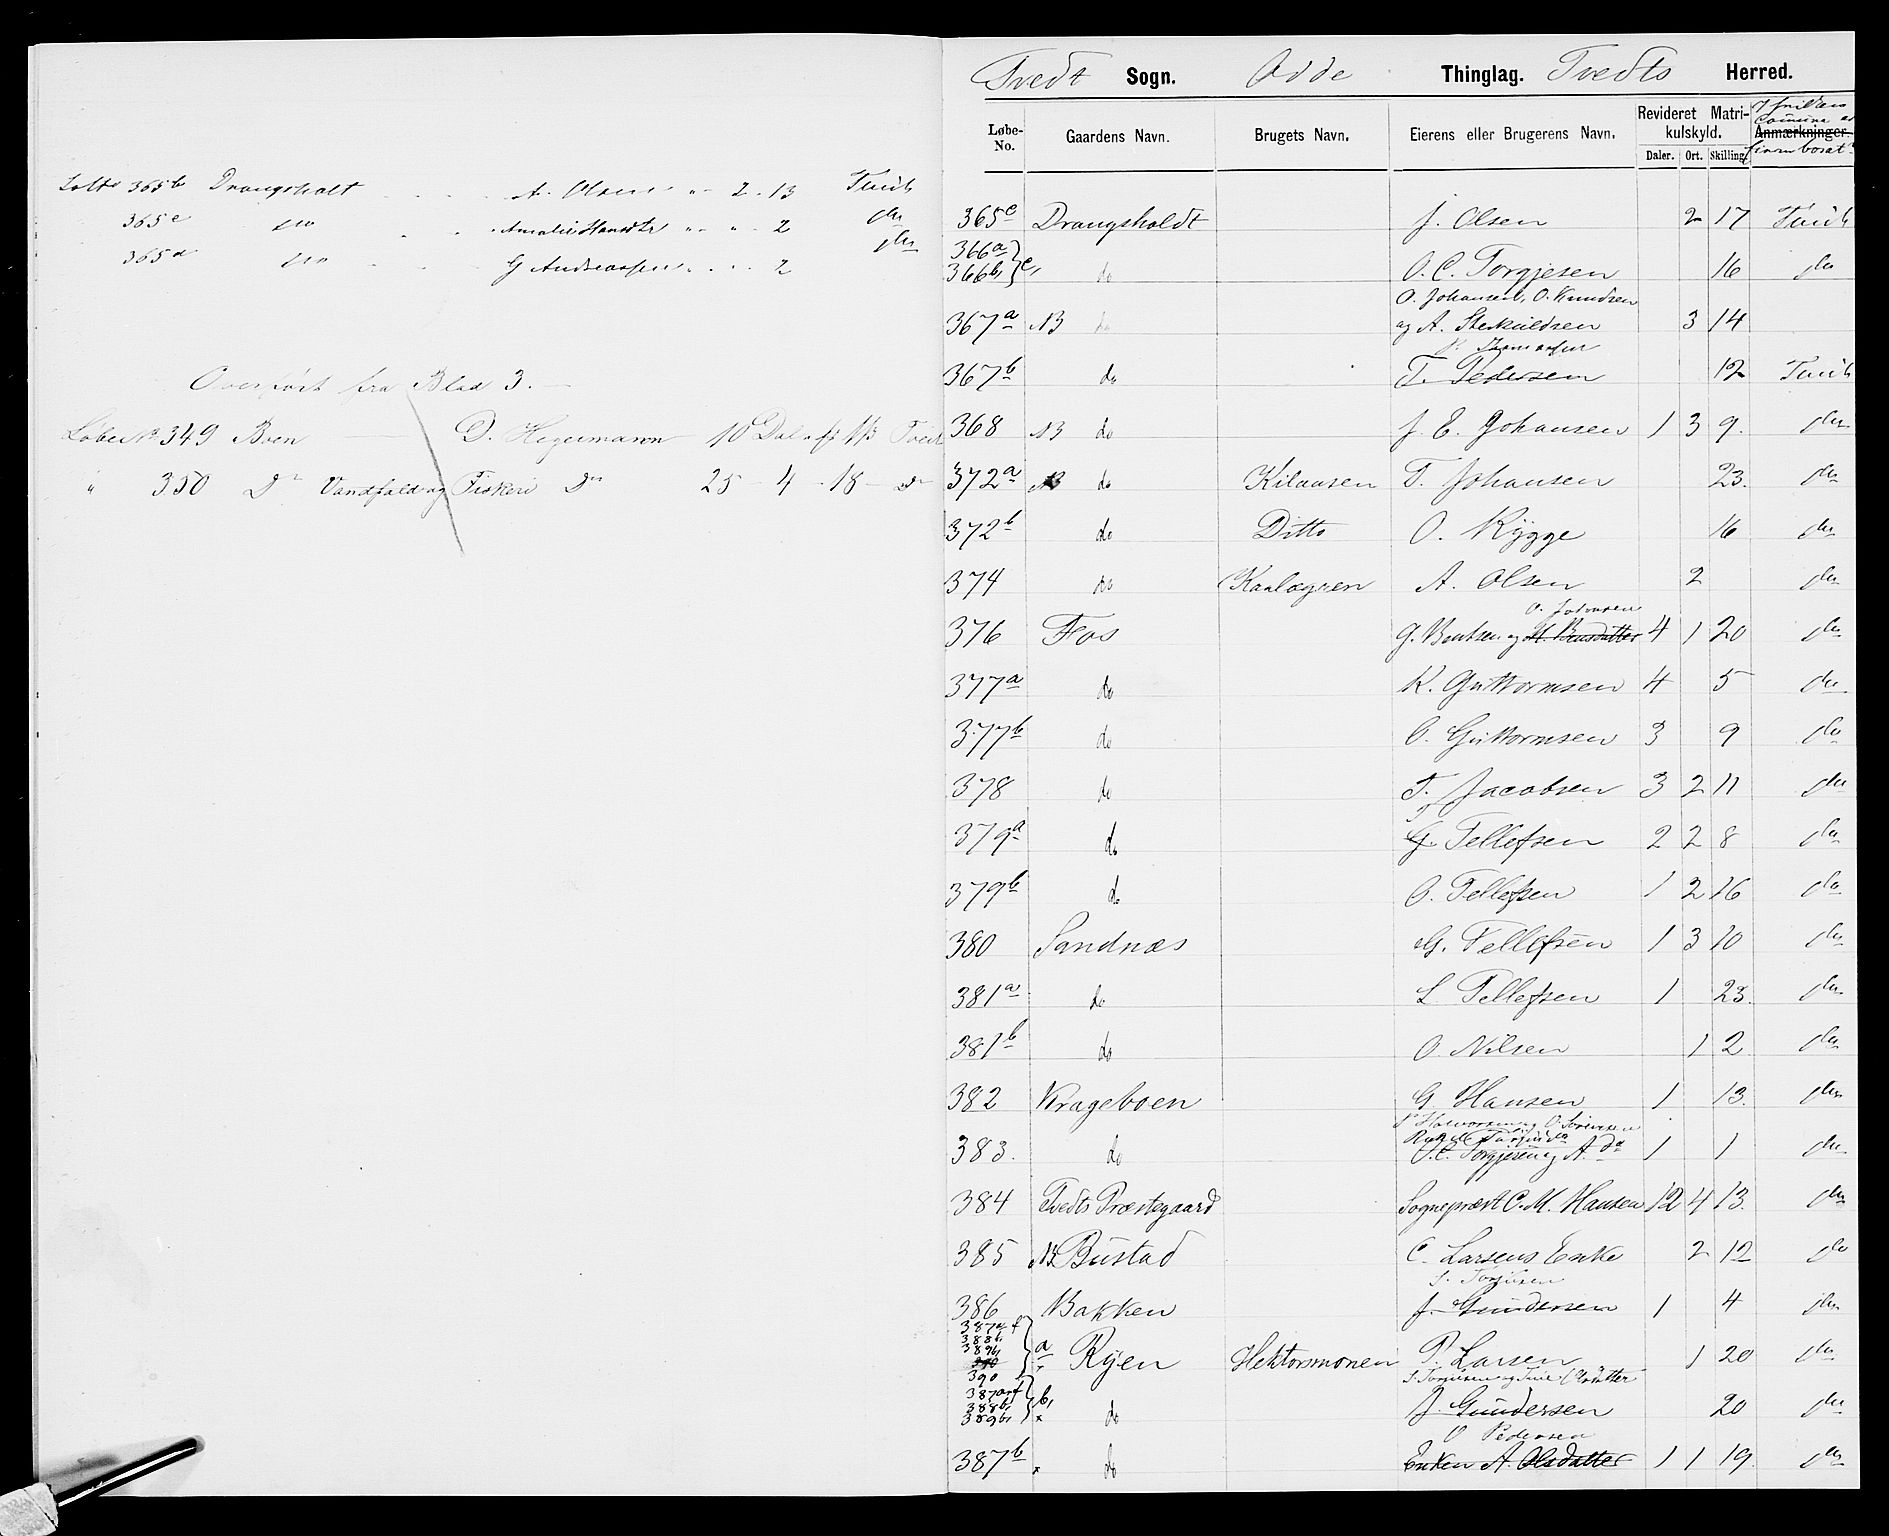 365b Drangsholt A. Olsen " - 2 - 13 Tveit
365c do Amalie Hansdtr " - " - 2 do
365d do G Andreassen 2 do
Overført fra Blad 3.
Løbe No 349 Boen D. Hegermann 10 Dal Tveit
" 350 Do Vandfald og Fiskeri Do 25 - 4 - 18 - Do
Tvedt Sogn. Odde Thinglag. Tvedts Herred.
Løbe-No. Gaardens Navn. Brugets Navn. Eierens eller Brugerens Navn. Revideret Matrikulskyld. Anmærkninger.
Daler. Ort. Skilling.
365e Drangsholdt J. Olsen 2 17 Tveit
366a
366b c, do O. C. Torgjesen 16 do
O. Johansen, O. Knudsen
367a NB do og A. 3 14
367b do T. Pedersen 12 Tveit
368 NB do J. E. Johansen 1 3 9. do
372a NB do Kilaasen T. Johansen 23. do
372b do Ditto O. Rygge 16 do
374 do A. Olsen 2 do
O. Johnsen
376 Fos G. Bentsen og 4 1 20 do
377a do K. Guttormsen 4 5 do
377b do O. Guttormsen 3 9 do
378 do T. Jacobsen 3 2 11 do
379a do G. Tellefsen 2 2 8 do
379b do O. Tellefsen 1 2 16 do
380 Sandnæs G. Tellefsen 1 3 10 do
381a do L Tellefsen 1 23. do
381b do O. Nilsen 1 2 do
382 Krageboen G Hansen 1 13. do
383. do O. C. Torgjesen og A. do 1 1 do
384 Tvedts Præstegaard Sogneprest C. M. Hansen 12 4 13. do
385 NB Bustad C. Larsens Enke 2 12 do
386 Bakken J. Gundersen 1 4 do
387a f
388b
389b
390 a Ryen Hektormonen P. Larsen 1 20 do
387a f
388b
389b b, do J. Gundersen 20 do
O Pedersen
387b do Enken A. Olsdatter 1 1 19 do